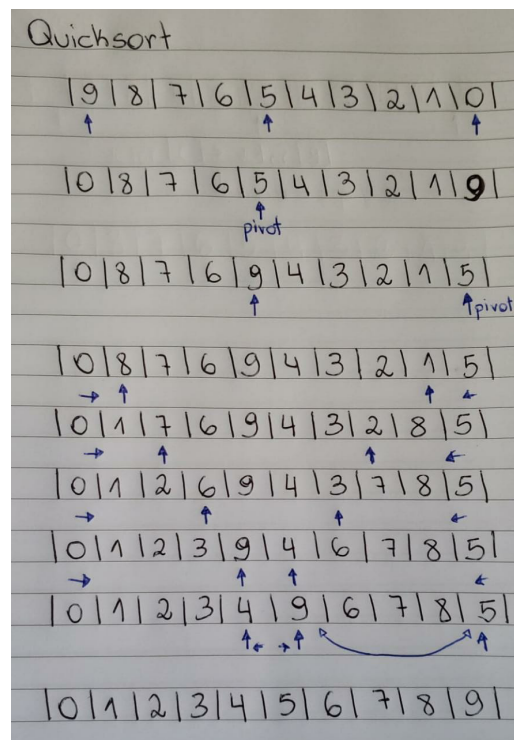 Quicksort
|9|8|7|6|5|4|3|2|1|0|
|0|8|7|6|5|4|3|2|1|9|
pivot
|0|8|7|6|9|4|3|2|1|5|
pivot
|0|8|7|6|9|4|3|2|1|5|
|0|1|7|6|9|4|3|2|8|5|
|0|1|2|6|9|4|3|7|8|5|
|0|1|2|3|9|4|6|7|8|5|
|0|1|2|3|4|9|6|7|8|5|
|0|1|2|3|4|5|6|7|8|9|